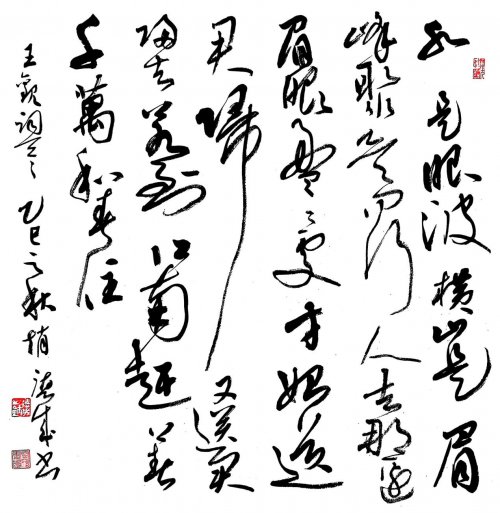 水是眼波横山是眉
峰聚欲问行人去那邊
眉眼盈盈处才始送
春歸又送君
歸去若到江南趕上春
千萬和春住
王觀詞 乙巳之秋 成书